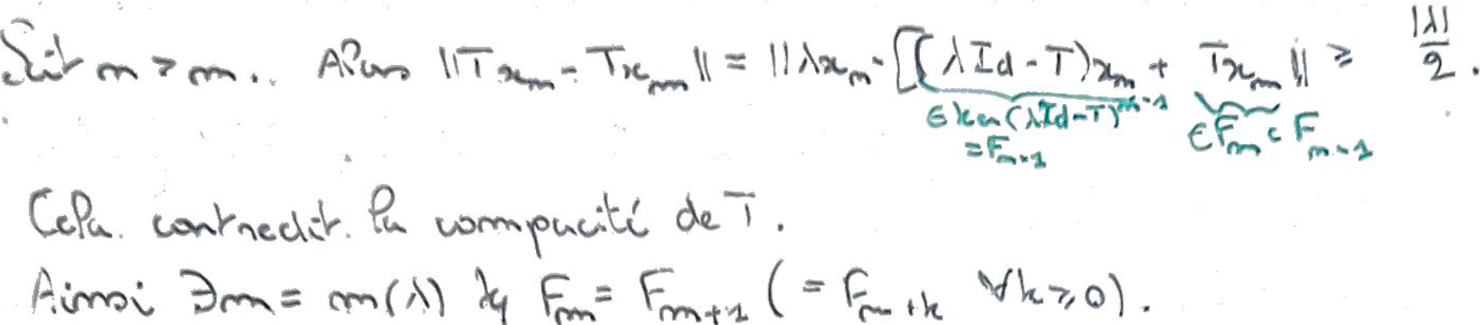 Soit n > m. Alors ||Tx_n - Tx_m|| = ||λx_n - [(λId - T)x_n + Tx_m|| ≥ |λ|/2.
∈ ker(λId-T)^{n-1} = F_{n-1} ∈ F_m ⊂ F_{n-1}
Cela contredit la compacité de T.
Ainsi ∃m = m(λ) tq F_m = F_{m+1} (= F_{m+k} ∀k ≥ 0).